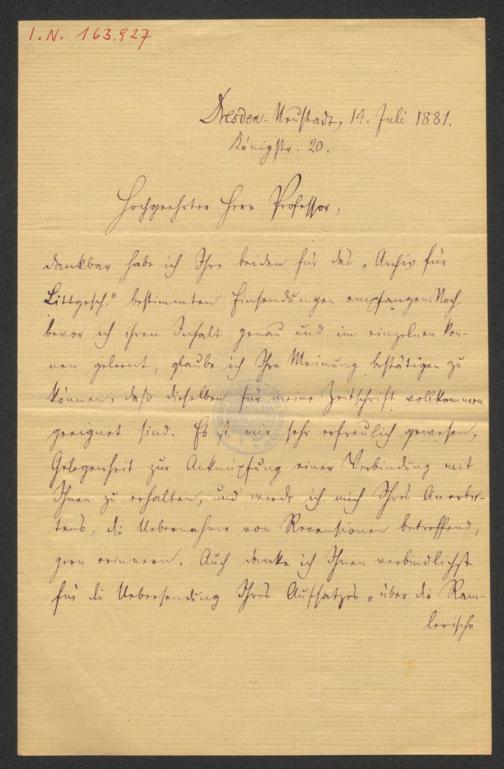 I. N. 163.927
Dresden-Neustadt, 14. Juli 1881.
Königstr. 20.
Hochgeehrter Herr Professor,
dankbar habe ich Ihre beiden für das „Archiv für
Littgesch." bestimmten Einsendungen empfangen. Noch
bevor ich ihren Inhalt genau und im einzelnen ken-
nen gelernt, glaube ich Ihre Meinung bestätigen zu
können, daß dieselben für meine Zeitschrift vollkommen
geeignet sind. Es ist mir sehr erfreulich gewesen,
Gelegenheit zur Anknüpfung einer Verbindung mit
Ihnen zu erhalten, und werde ich mich Ihres Anerbie-
tens, die Uebernahme von Recensionen betreffend,
gern erinnern. Auch danke ich Ihnen verbindlichst
für die Uebersendung Ihres Aufsatzes „über die Ram-
lerische